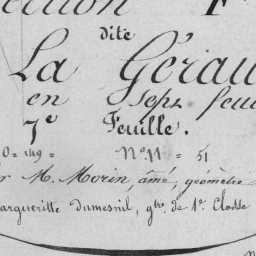 ection F
dite
La Gérau
en Sept feu
7e Feuille.
0 = 149 = No 11 = 51
r M. Morin, aîné, géomètre
argueritte Dumesnil, gtre. de 1e. Classe